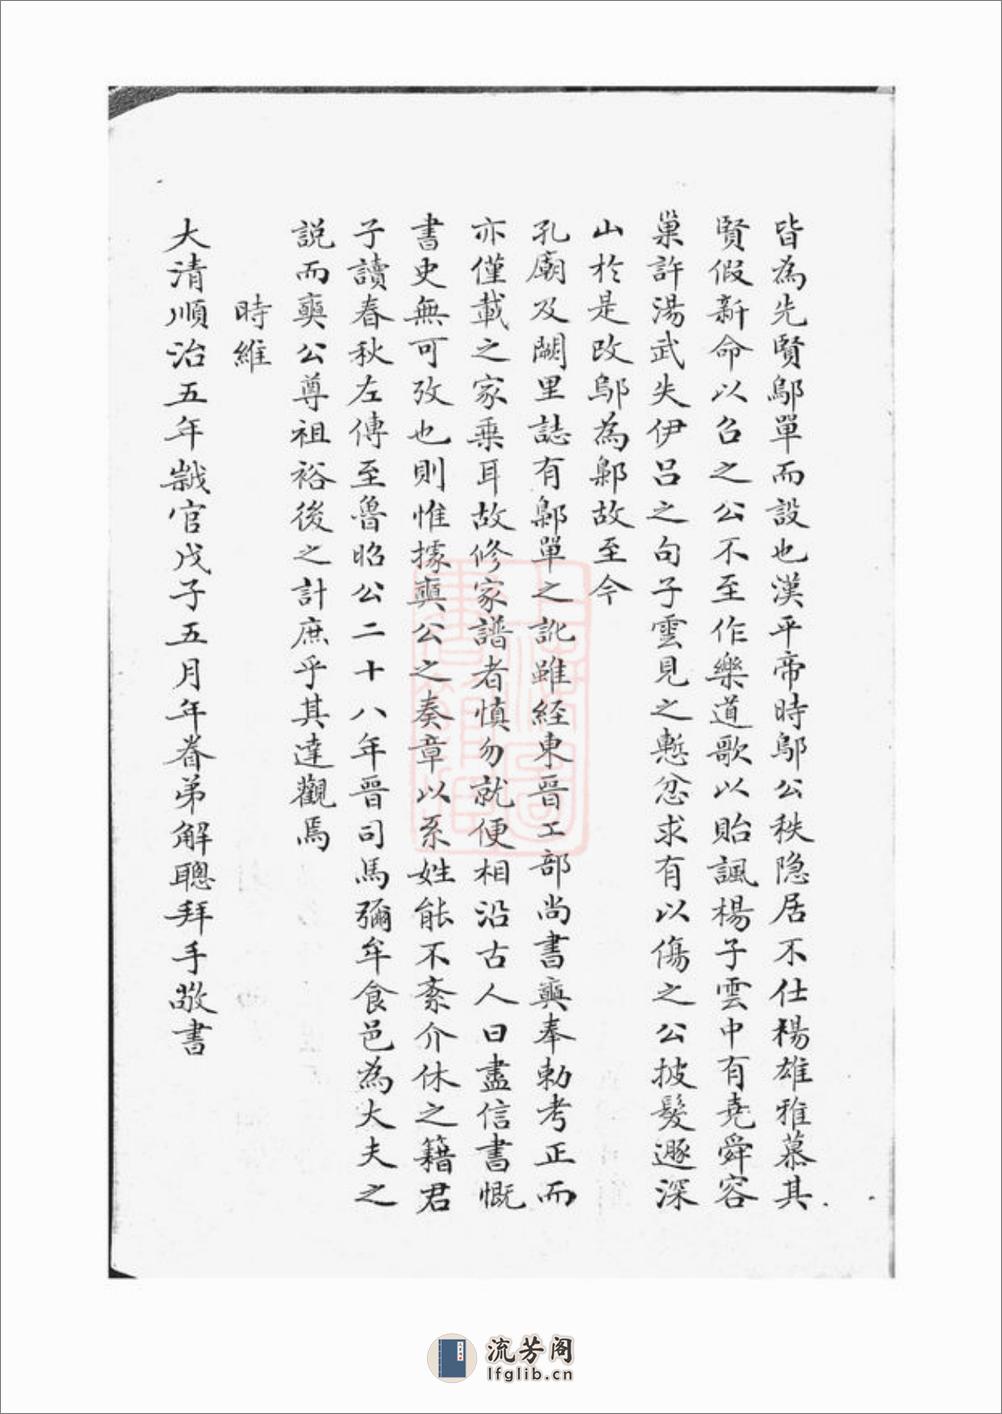 皆為先賢鄔單而設也漢平帝時鄔公秩隐居不仕楊雄雅慕其
賢假新命以召之公不至作樂道歌以貽諷楊子雲中有堯舜容
巢許湯武失伊呂之句子雲見之慙忿求有以傷之公披髮遯深
山於是改鄔為鄡故至今
孔廟及闕里誌有鄡單之訛雖経東晋工部尚書奭奉勅考正而
亦僅載之家乗耳故修家譜者慎勿就便相沿古人曰盡信書慨
書史無可攷也則惟據奭公之奏章以系姓能不紊介休之籍君
子讀春秋左傳至魯昭公二十八年晉司馬彌牟食邑為大夫之
説而奭公尊祖裕後之計庶乎其達觀焉
時維
大清順治五年嵗官戊子五月年眷弟解聰拜手敬書
流芳阁
lfglib.cn